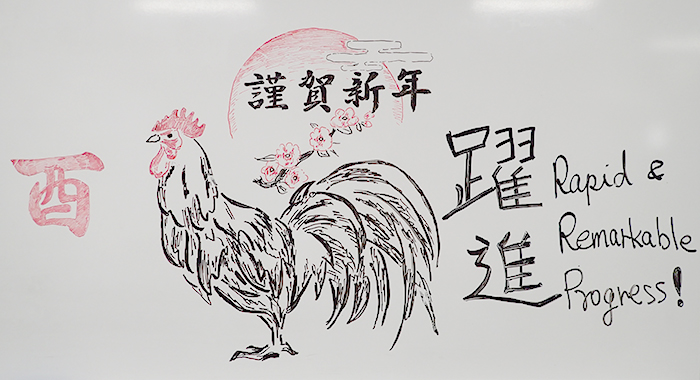 謹賀新年
酉
躍進
Rapid &
Remarkable
Progress!